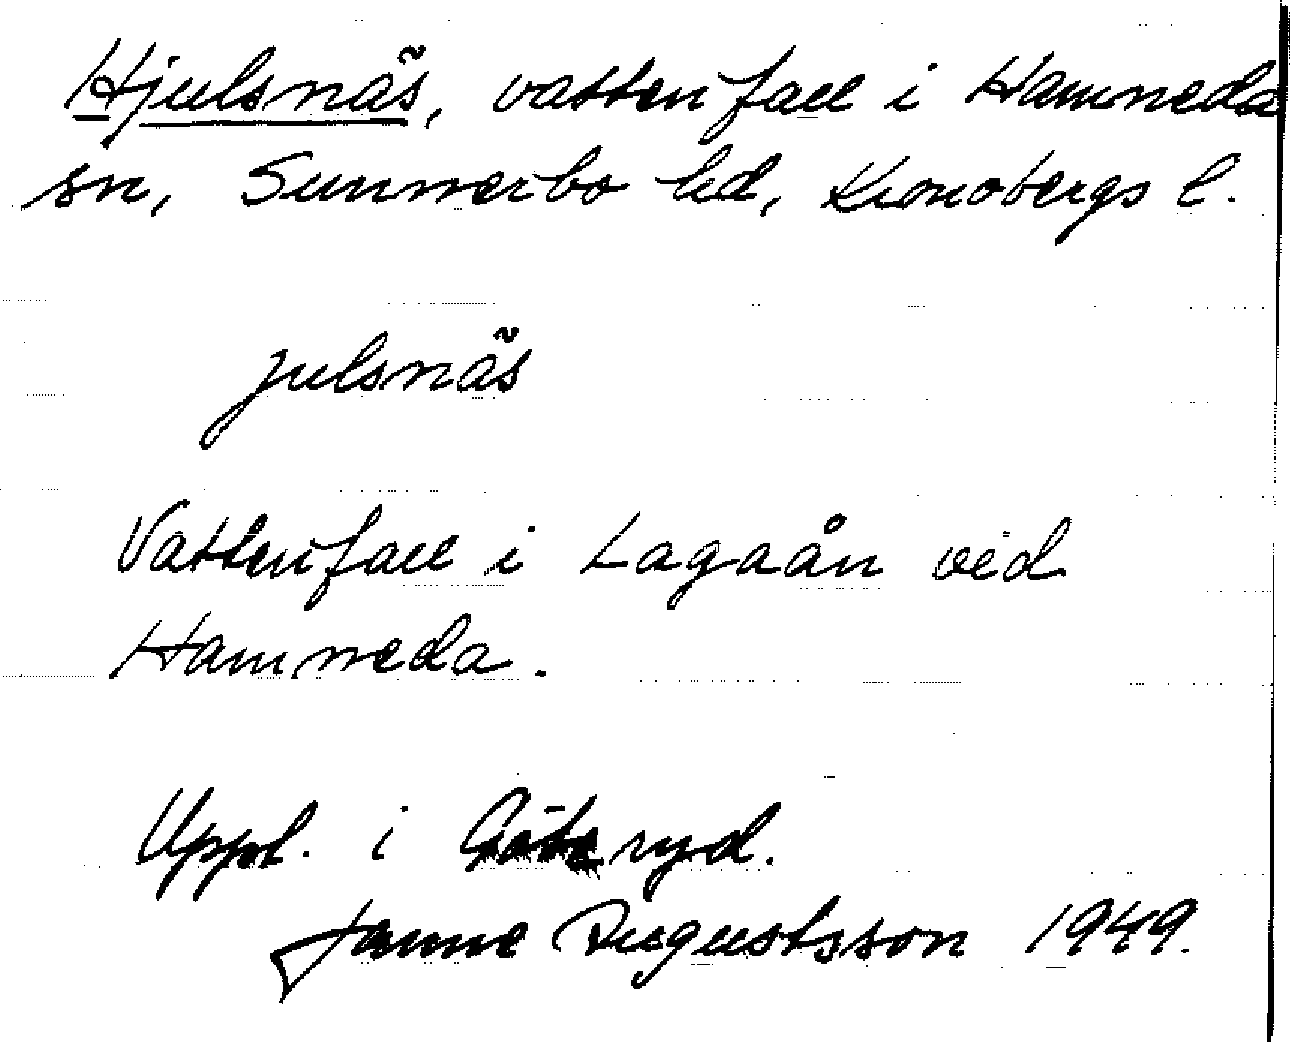 Hjulsnäs, vattenfall i Hamneda
sn, Sunnerbo hd, Kronobergs l.
julsnäs
Vattenfall i Lagaån vid
Hamneda.
Uppt. i Göteryd.
Janne Augustsson 1949.